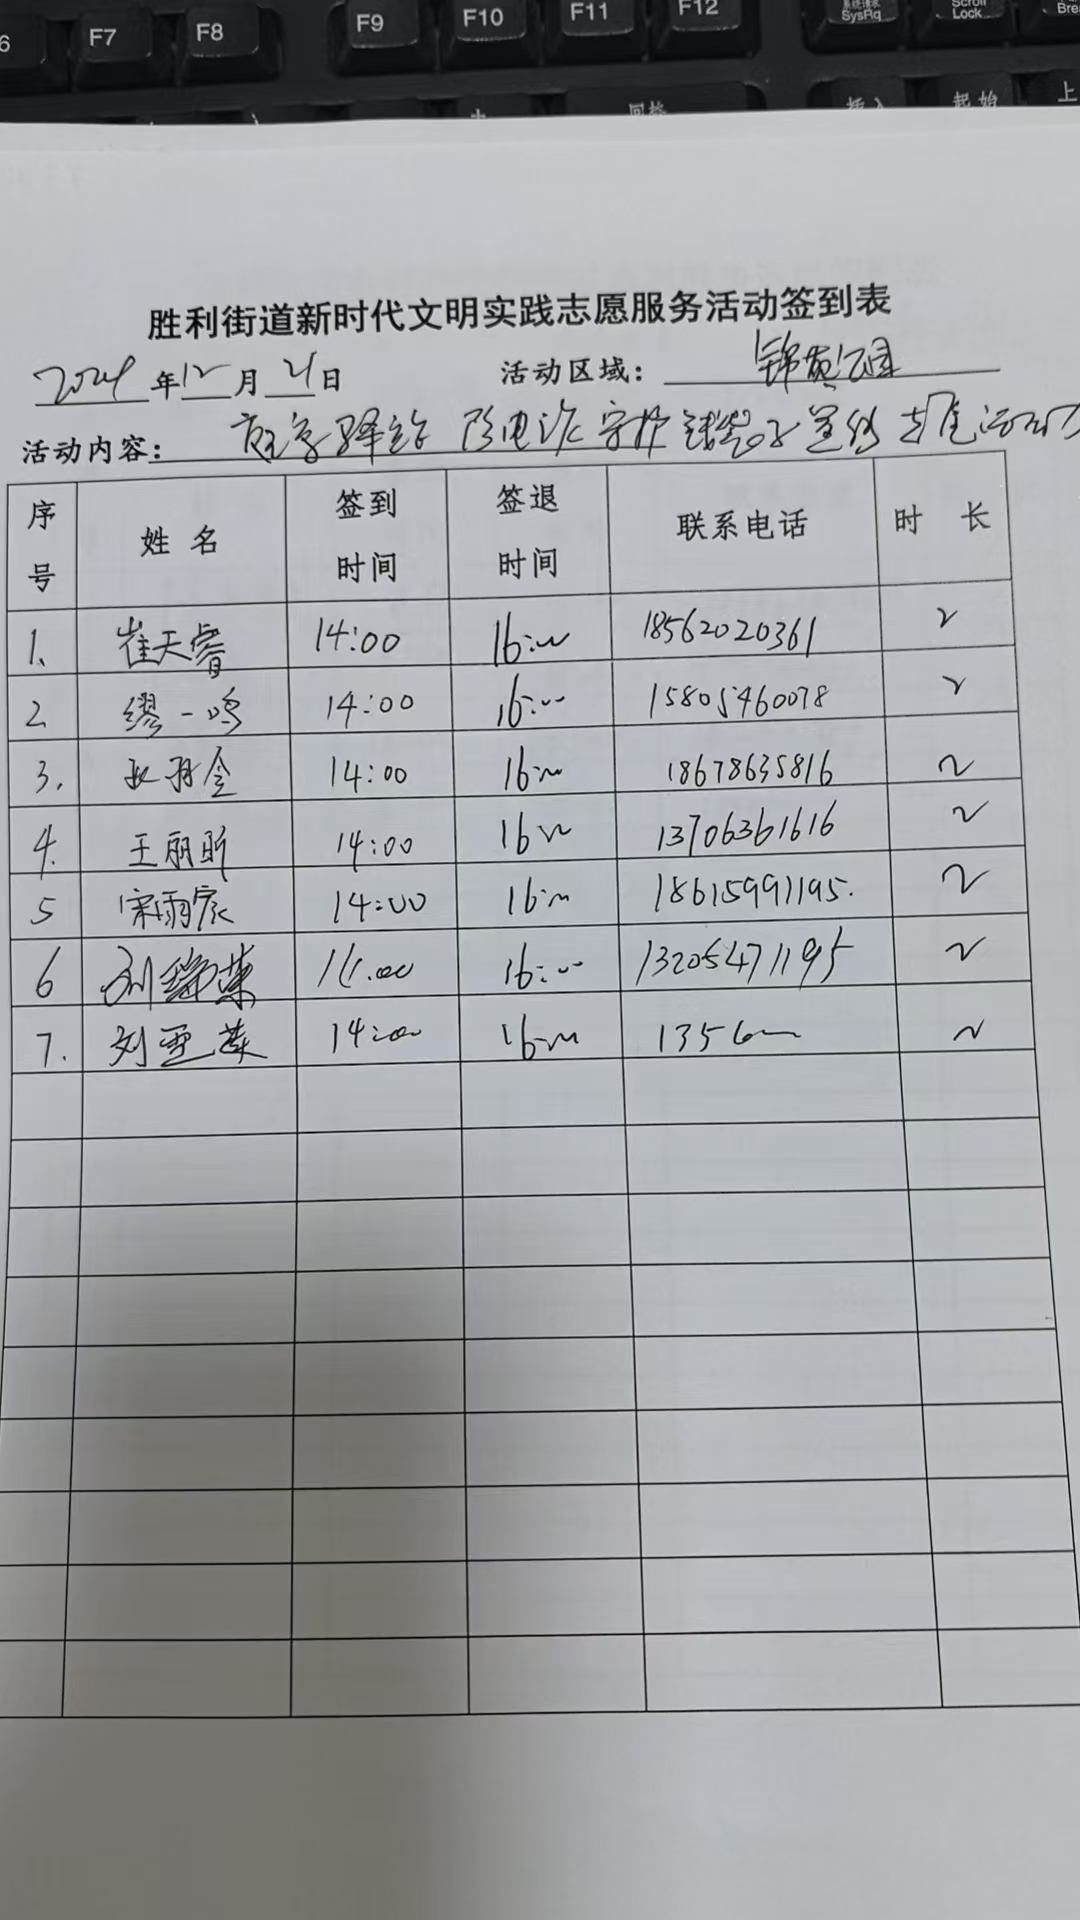 6 F7 F8 F9 F10 F11 F12 SysRq Scroll Lock Brea
插入 起始 上
胜利街道新时代文明实践志愿服务活动签到表
2024年12月21日 活动区域：锦苑公园
活动内容： 防电诈 守护钱袋子宣传
序号 姓名 签到时间 签退时间 联系电话 时长
1、 崔天睿 14:00 16:00 18562020361 2
2 缪一鸣 14:00 16:00 15805460078 2
3. 14:00 16:00 18678635816 2
4. 王丽昕 14:00 16:00 13706361616 2
5 宋雨宸 14:00 16:00 18615991195. 2
6 刘 14:00 16:00 13205471195 2
7. 刘亚英 14:00 16:00 1356 2